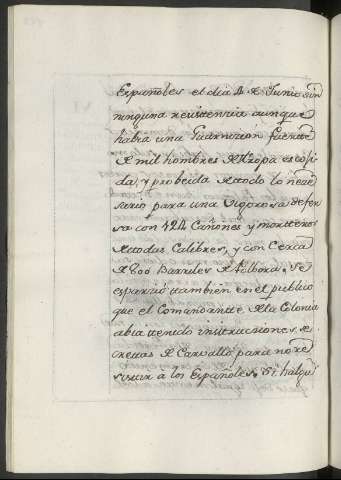 Españoles el dia 4 de Junio sin
ninguna resistenzia aunque
habia una Guarnizion fuerte
de mil hombres de tropa escoji
da, y probeida de todo lo neze
sario para una vigorosa defen
sa con 124 Cañones y morteros
de todas Calibres, y con Cerca
de 800 Barriles de Polbora. Se
esparzió tambien en el publico
que el Comandante de la Colonia
abia tenido instruciones se
cretas de Carvallo para no re
sistir a los Españoles. Si halgu